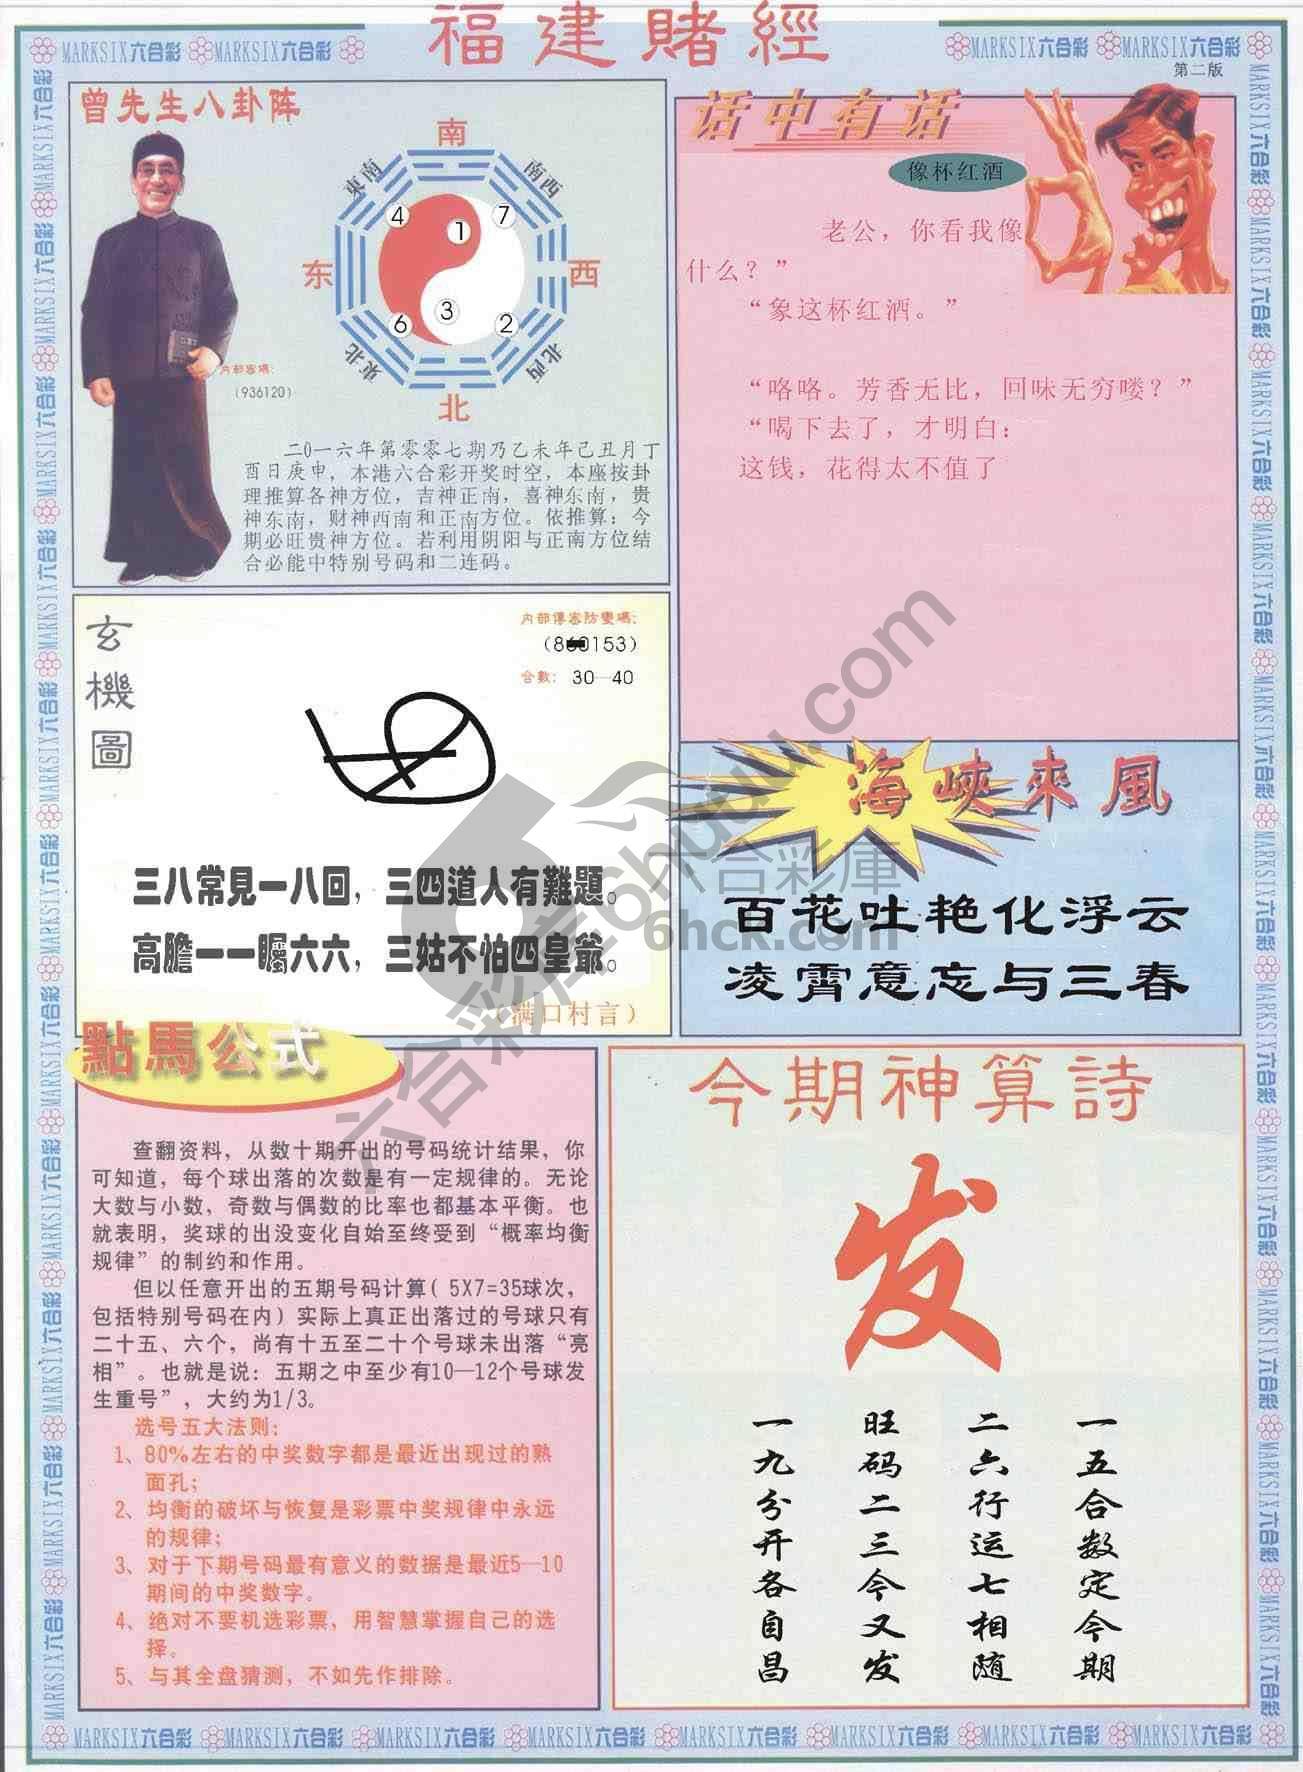 福建賭經
MARKSIX六合彩 MARKSIX六合彩
MARKSIX六合彩 MARKSIX六合彩
第二版
曾先生八卦阵
南
東南
南西
4
1
7
东
西
6
3
2
東北
北西
北
内部密碼:
(936120)
二0一六年第零零七期乃乙未年己丑月丁
酉日庚申，本港六合彩开奖时空，本座按卦
理推算各神方位，吉神正南，喜神东南，贵
神东南，财神西南和正南方位。依推算：今
期必旺贵神方位。若利用阴阳与正南方位结
合必能中特别号码和二连码。
话中有话
像杯红酒
老公，你看我像
什么？”
“象这杯红酒。”
“咯咯。芳香无比，回味无穷喽？”
“喝下去了，才明白：
这钱，花得太不值了
玄機圖
内部傳密防變碼:
(860153)
合數: 30—40
三八常見一八回，三四道人有難題。
高膽一一矚六六，三姑不怕四皇爺。
（满口村言）
海峽來風
百花吐艳化浮云
凌霄意忘与三春
點馬公式
查翻资料，从数十期开出的号码统计结果，你
可知道，每个球出落的次数是有一定规律的。无论
大数与小数，奇数与偶数的比率也都基本平衡。也
就表明，奖球的出没变化自始至终受到“概率均衡
规律”的制约和作用。
但以任意开出的五期号码计算( 5X7=35球次，
包括特别号码在内）实际上真正出落过的号球只有
二十五、六个，尚有十五至二十个号球未出落“亮
相”。也就是说：五期之中至少有10—12个号球发
生重号”，大约为1/3。
选号五大法则：
1、80%左右的中奖数字都是最近出现过的熟
面孔；
2、均衡的破坏与恢复是彩票中奖规律中永远
的规律；
3、对于下期号码最有意义的数据是最近5—10
期间的中奖数字。
4、绝对不要机选彩票，用智慧掌握自己的选
择。
5、与其全盘猜测，不如先作排除。
今期神算詩
发
一五合数定今期
二六行运七相随
旺码二三今又发
一九分开各自昌
六合彩库6hquu.com
六合彩庫
6hck.com
MARKSIX六合彩 MARKSIX六合彩 MARKSIX六合彩 MARKSIX六合彩 MARKSIX六合彩 MARKSIX六合彩 MARKSIX六合彩 MARKSIX六合彩